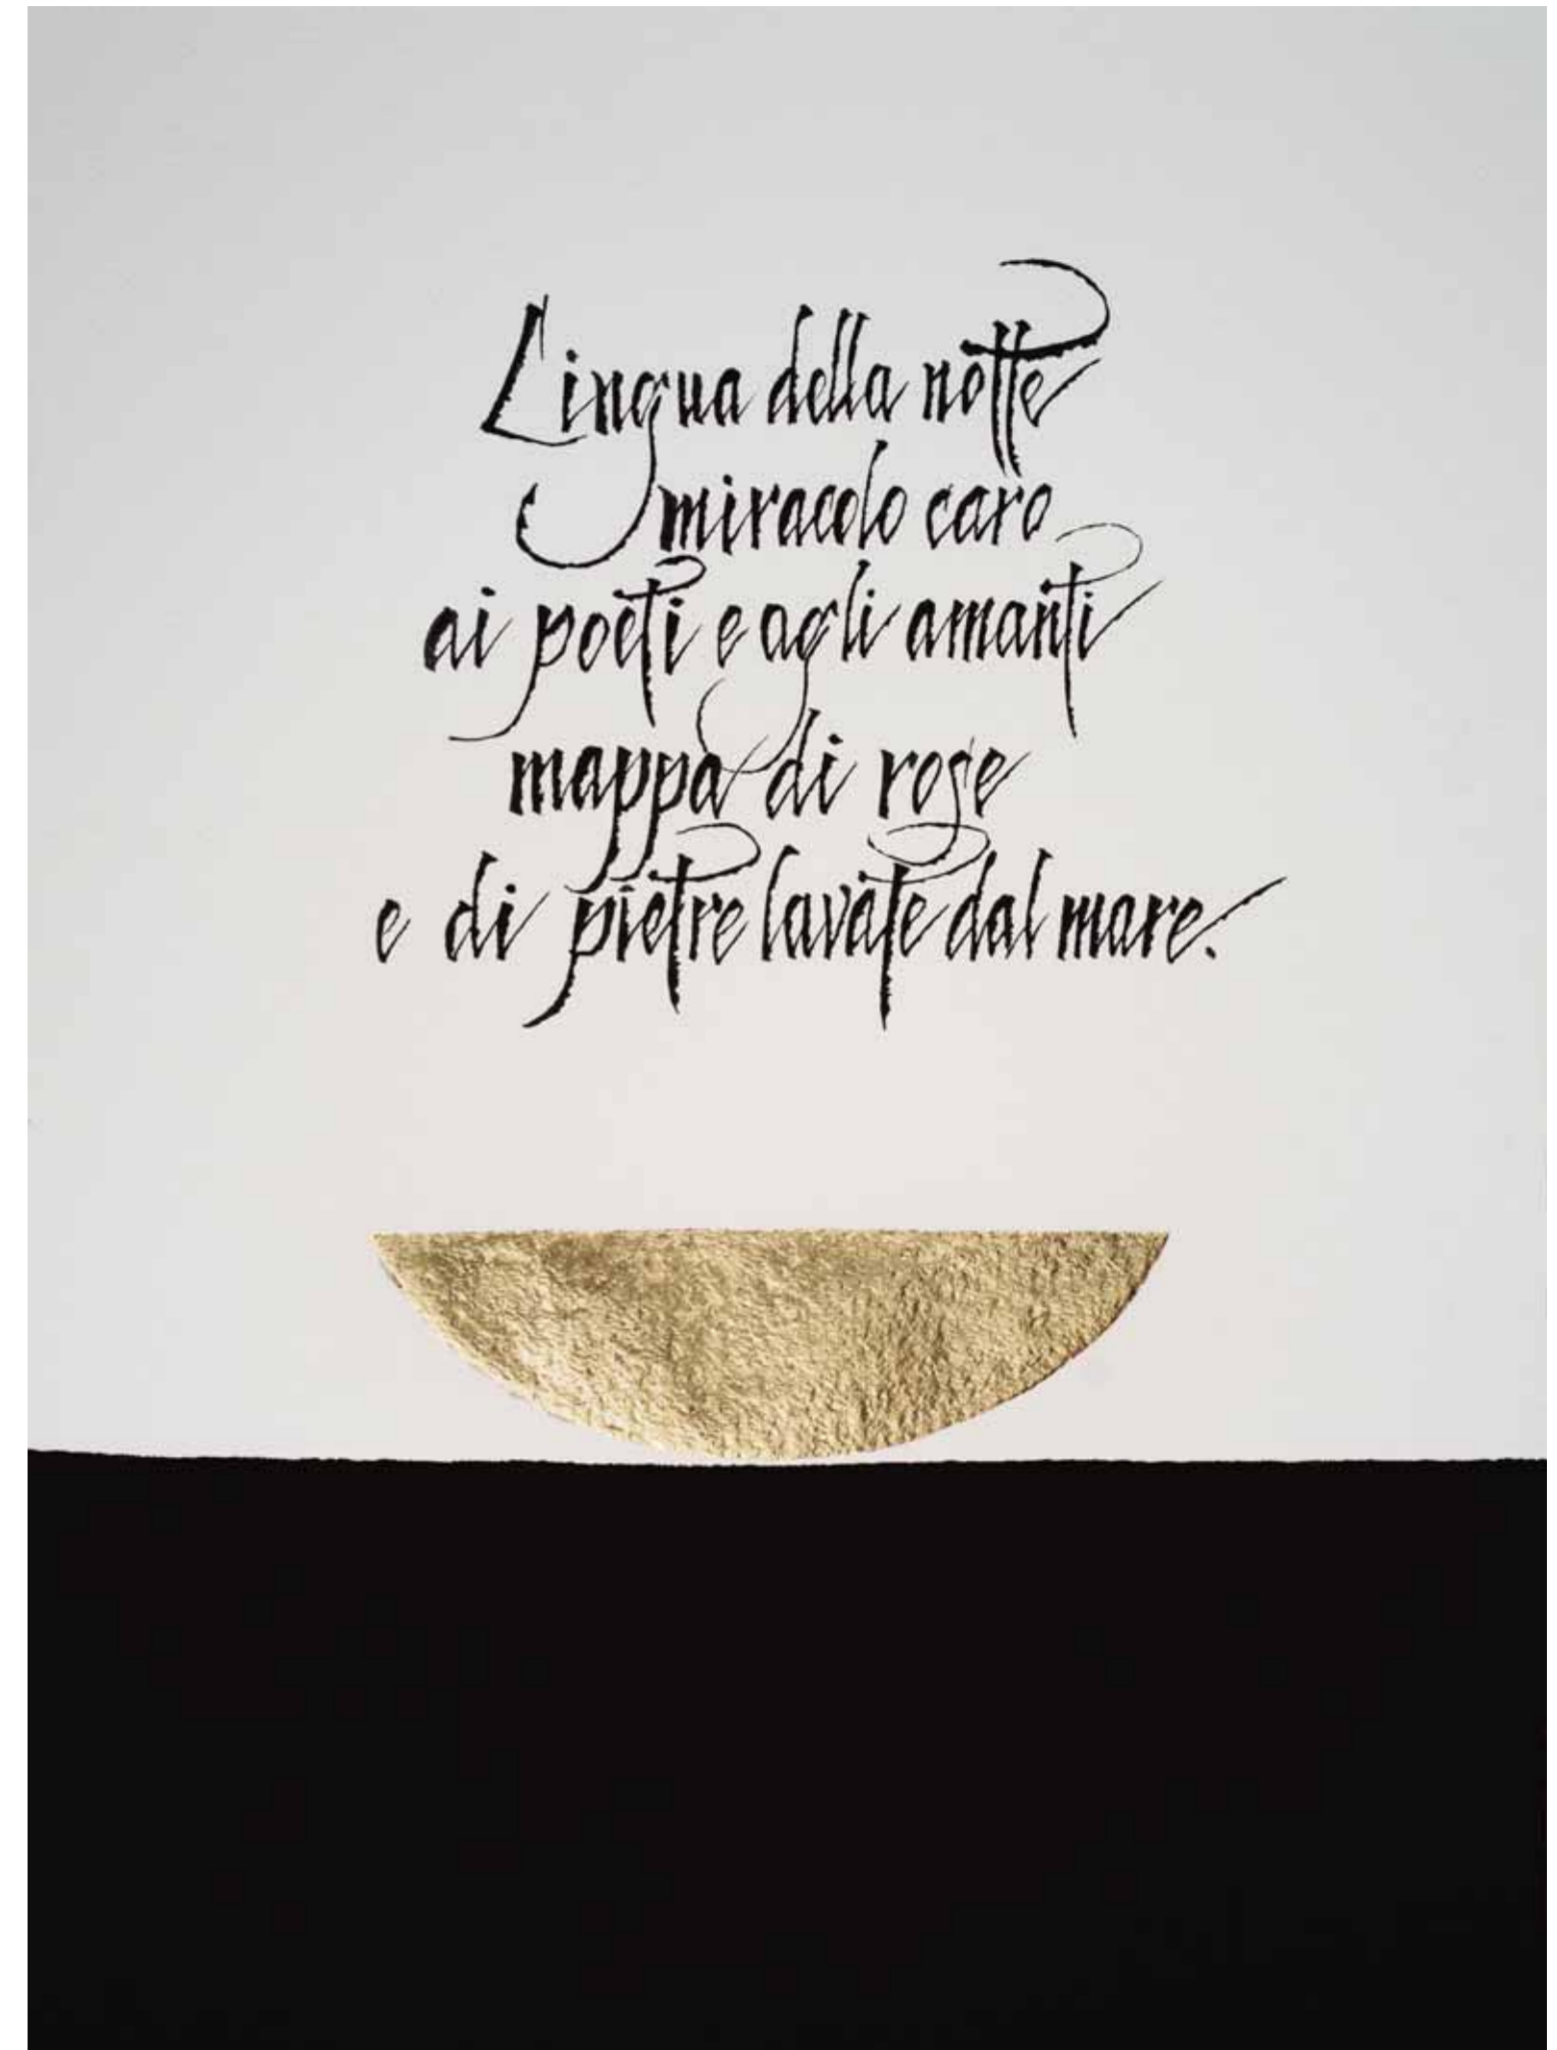 Lingua della notte
miracolo caro
ai poeti e agli amanti
mappa di rose
e di pietre lavate dal mare.